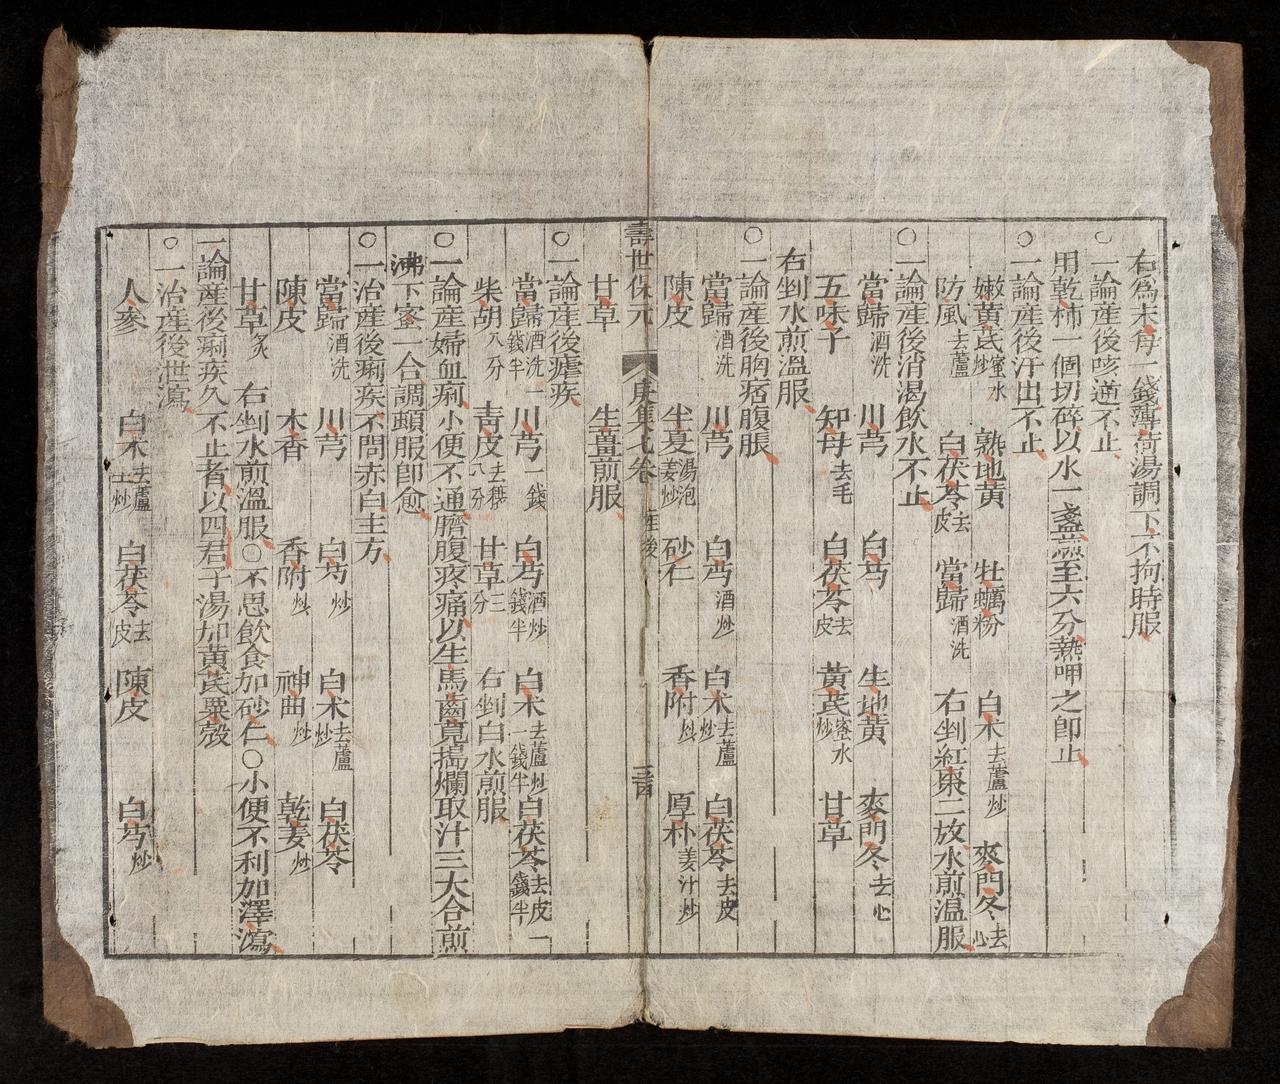 右爲末每一錢薄荷湯調下不拘時服
○一論產後咳逆不止
用乾柿一個切碎以水一盞煎至六分熱呷之卽止
○一論產後汗出不止
嫩黃芪蜜水炒 熟地黃 牡蠣粉 白朮去蘆炒 麥門冬去心
防風去蘆 白茯苓去皮 當歸酒洗 右剉紅棗二枚水煎溫服
○一論產後消渴飲水不止
當歸酒洗 川芎 白芍 生地黃 麥門冬去心
五味子 知母去毛 白茯苓去皮 黃芪蜜水炒 甘草
右剉水煎溫服
○一論產後胸痞腹脹
當歸酒洗 川芎 白芍酒炒 白朮去蘆炒 白茯苓去皮
陳皮 半夏湯泡姜炒 砂仁 香附炒 厚朴姜汁炒
甘草 生薑煎服
壽世保元 庚集七卷 產後
○一論產後瘧疾
當歸酒洗一錢半 川芎一錢 白芍酒炒錢半 白朮去蘆炒一錢半 白茯苓去皮一錢半
柴胡八分 青皮去穰八分 甘草三分 右剉白水煎服
○一論產婦血痢小便不通臍腹疼痛以生馬齒莧搗爛取汁三大合煎
沸下蜜一合調頓服卽愈
○一治產後痢疾不問赤白主方
當歸酒洗 川芎 白芍炒 白朮去蘆炒 白茯苓
陳皮 木香 香附炒 神曲炒 乾姜炒
甘草炙 右剉水煎溫服○不思飲食加砂仁○小便不利加澤瀉
一論產後痢疾久不止者以四君子湯加黃芪粟殼
○一治產後泄瀉
人參 白朮去蘆土炒 白茯苓去皮 陳皮 白芍炒